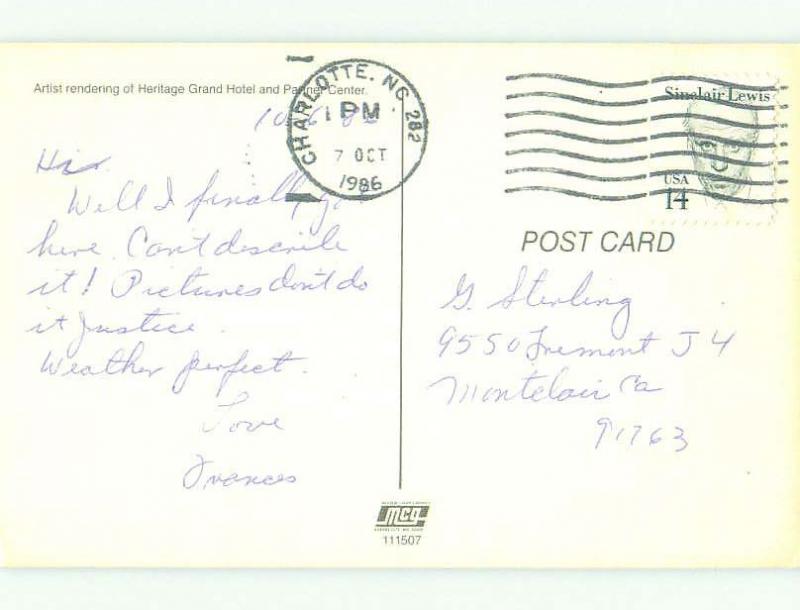 Artist rendering of Heritage Grand Hotel and Partner Center.
CHARLOTTE, NC 282
1 PM
7 OCT
1986
Sinclair Lewis
USA
14
10-6-86
Hi
Well I finally got
here. Can't describe
it! Pictures don't do
it justice.
Weather perfect.
Love
Frances
POST CARD
G. Sterling
9550 Fremont J 4
Montclair Ca
91763
mcg
111507